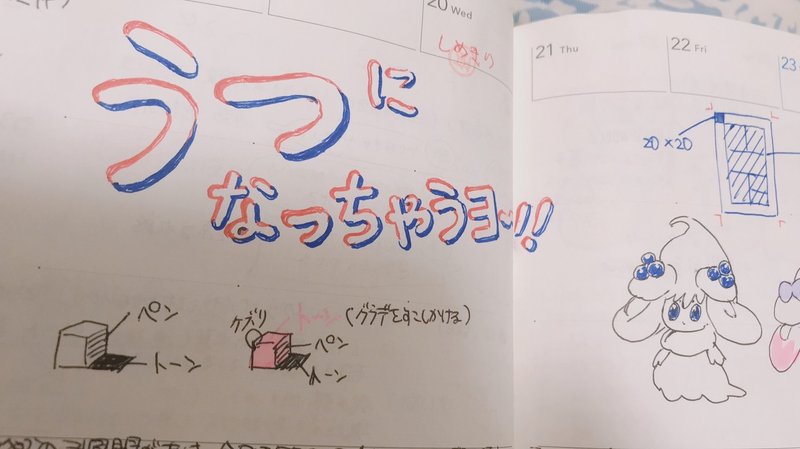 20 Wed
しめきり
うつに
なっちゃうヨッ!!
ペン
トーン
ケズリ
トーン(グラデをすこしかける)
ペン
トーン
21 Thu
22 Fri
23
20×20